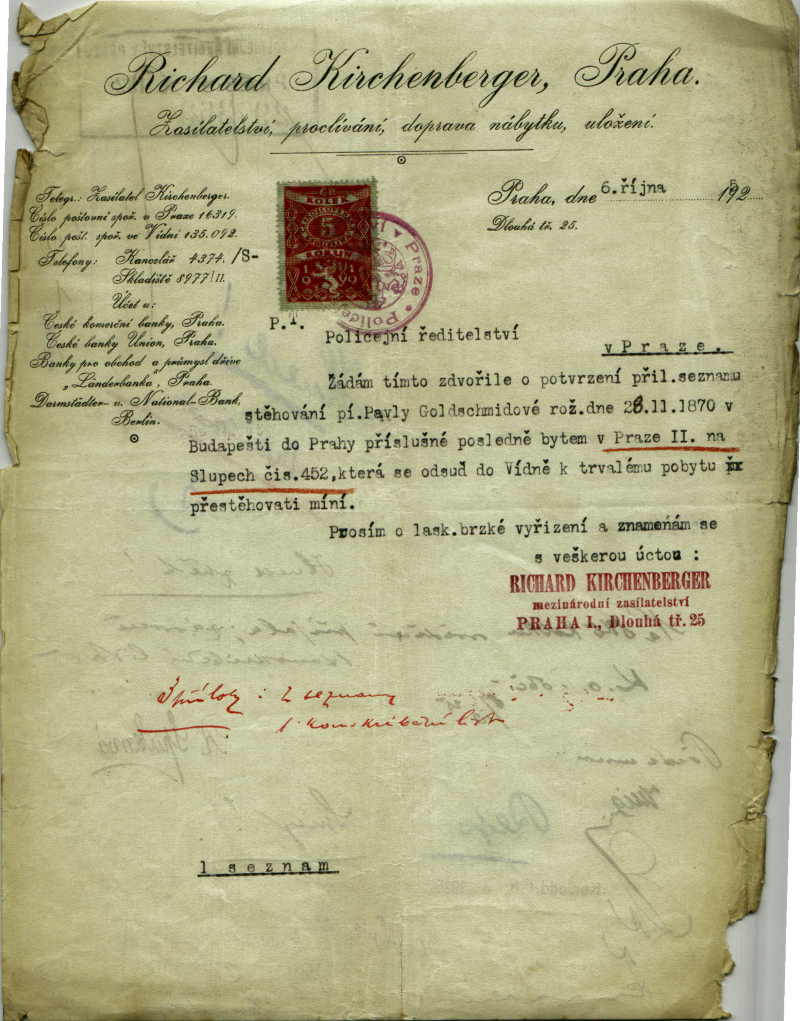 Richard Kirchenberger, Praha.
Zasílatelství, proclívání, doprava nábytku, uložení.
Telegr.: Zasílatel Kirchenberger.
Číslo poštovní spoř. v Praze 16319.
Číslo pošt. spoř. ve Vídni 135.092.
Telefony: Kancelář 4374. /S-
Skladiště 8977/II.
Účet u:
České komerční banky, Praha.
České banky Union, Praha.
Banky pro obchod a průmysl dříve
„Länderbanka", Praha.
Darmstädter- u. National-Bank,
Berlin.
Praha, dne 6.října 192
Dlouhá tř. 25.
KOLEK
5
KORUN
1919
Praze
P.T.
Policejní ředitelství
v Praze.
Žádám tímto zdvořile o potvrzení přil.seznamu
stěhování pí.Pavly Goldschmidové rož.dne 28.11.1870 v
Budapešti do Prahy příslušné posledně bytem v Praze II. na
Slupech čis.452,která se odsud do Vídně k trvalému pobytu
přestěhovati míní.
Prosím o lask.brzké vyřizení a znamenám se
s veškerou úctou :
RICHARD KIRCHENBERGER
mezinárodní zasílatelství
PRAHA I., Dlouhá tř. 25
3 přílohy : 2 seznamy
1 konskribční list
1 seznam